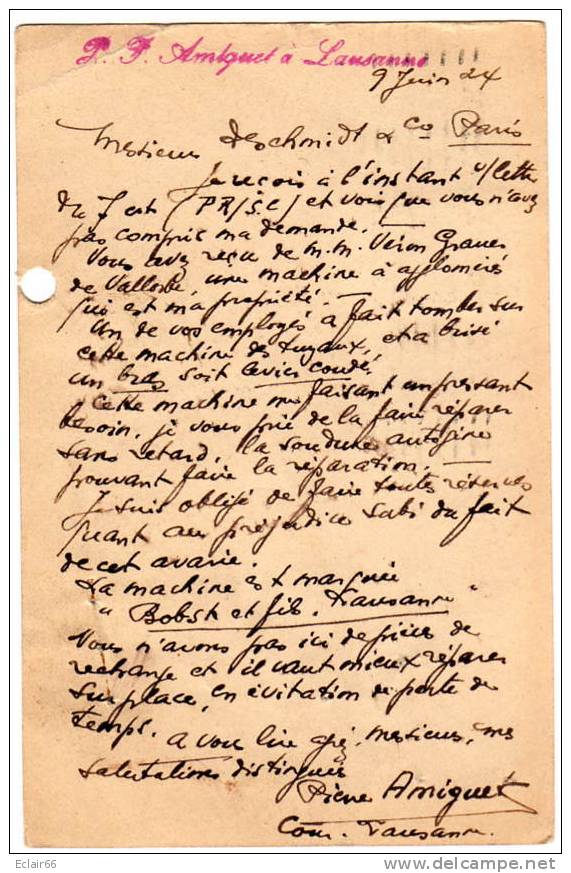 P. F. Amiguet à Lausanne
9 Juin 24
Messieurs Deschmidt & Co Paris
Je reçois à l'instant v/lettre
du 7 cst (PR/S.C) et vois que vous n'avez
pas compris ma demande. —
Vous avez reçu de M.M. Véron Grauer
de Vallorbe, une machine à agglomérés
qui est ma propriété. —
Un de vos employés a fait tomber sur
cette machine des tuyaux, et a brisé
un bras soit levier coudé.
Cette machine me faisant un pressant
besoin, je vous prie de la faire réparer
sans retard, la soudure autogène
pouvant faire la réparation. —
Je suis obligé de faire toutes réserves
quant au préjudice subi du fait
de cet avarie.
La machine est marquée
"Bobst et fils. Lausanne"
Nous n'avons pas ici de pièces de
rechange et il vaut mieux réparer
sur place, en évitation de perte de
temps.
A vous lire, Messieurs, mes
salutations distinguées
Pierre Amiguet
Lausanne.
Eclair66
delcampe.net